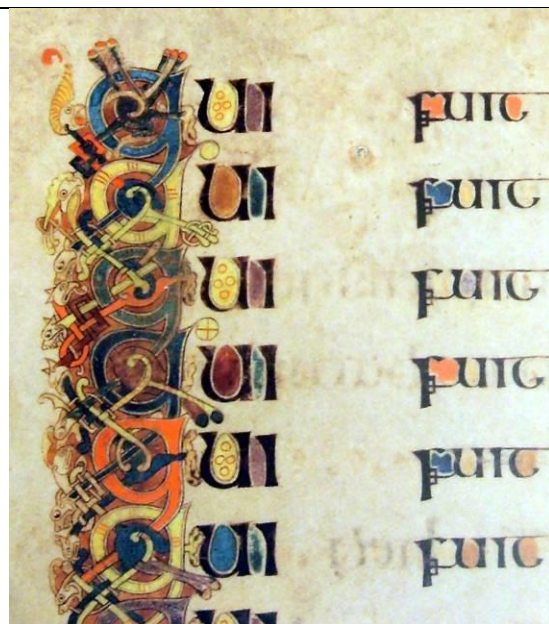 Qui fuit
Qui fuit
Qui fuit
Qui fuit
Qui fuit
Qui fuit